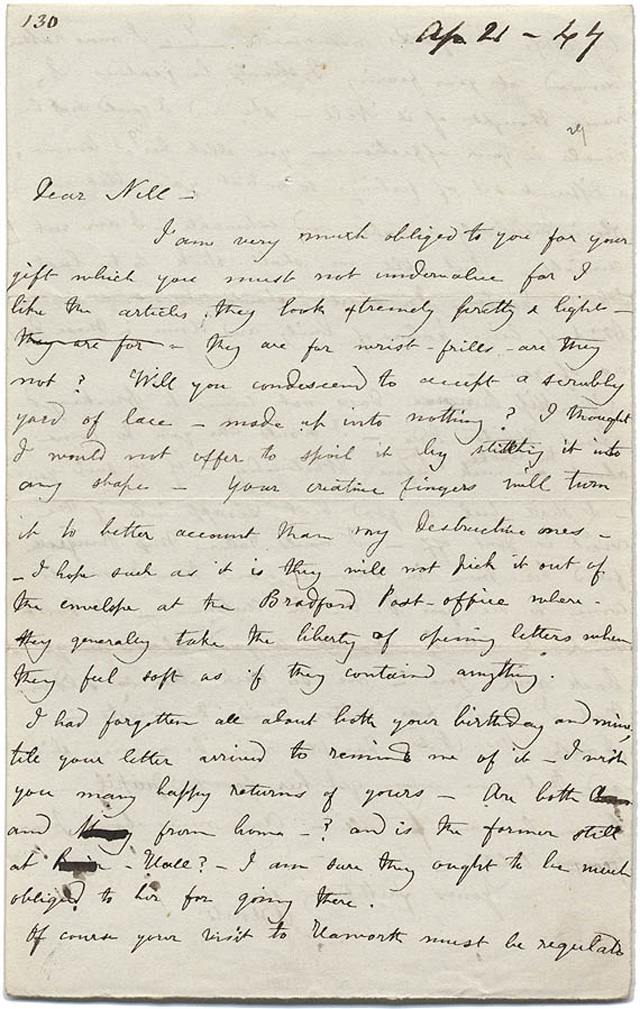 130
Ap. 21 - 47
29
Dear Nell -
I am very much obliged to you for your
gift which you must not undervalue for I
like the articles, they look extremely pretty & light -
they are for - they are for wrist-frills - are they
not? Will you condescend to accept a scrubby
yard of lace - made up into nothing? I thought
I would not offer to spoil it by stitching it into
any shape - Your creative fingers will turn
it to better account than my destructive ones -
- I hope such as it is they will not pick it out of
the envelope at the Bradford Post-office where -
they generally take the liberty of opening letters when
they feel soft as if they contained anything.
I had forgotten all about both your birthday and mine,
till your letter arrived to remind me of it - I wish
you many happy returns of yours - Are both
and from home - ? and is the former still
at - Hall? - I am sure they ought to be much
obliged to her for going there.
Of course your visit to Haworth must be regulated